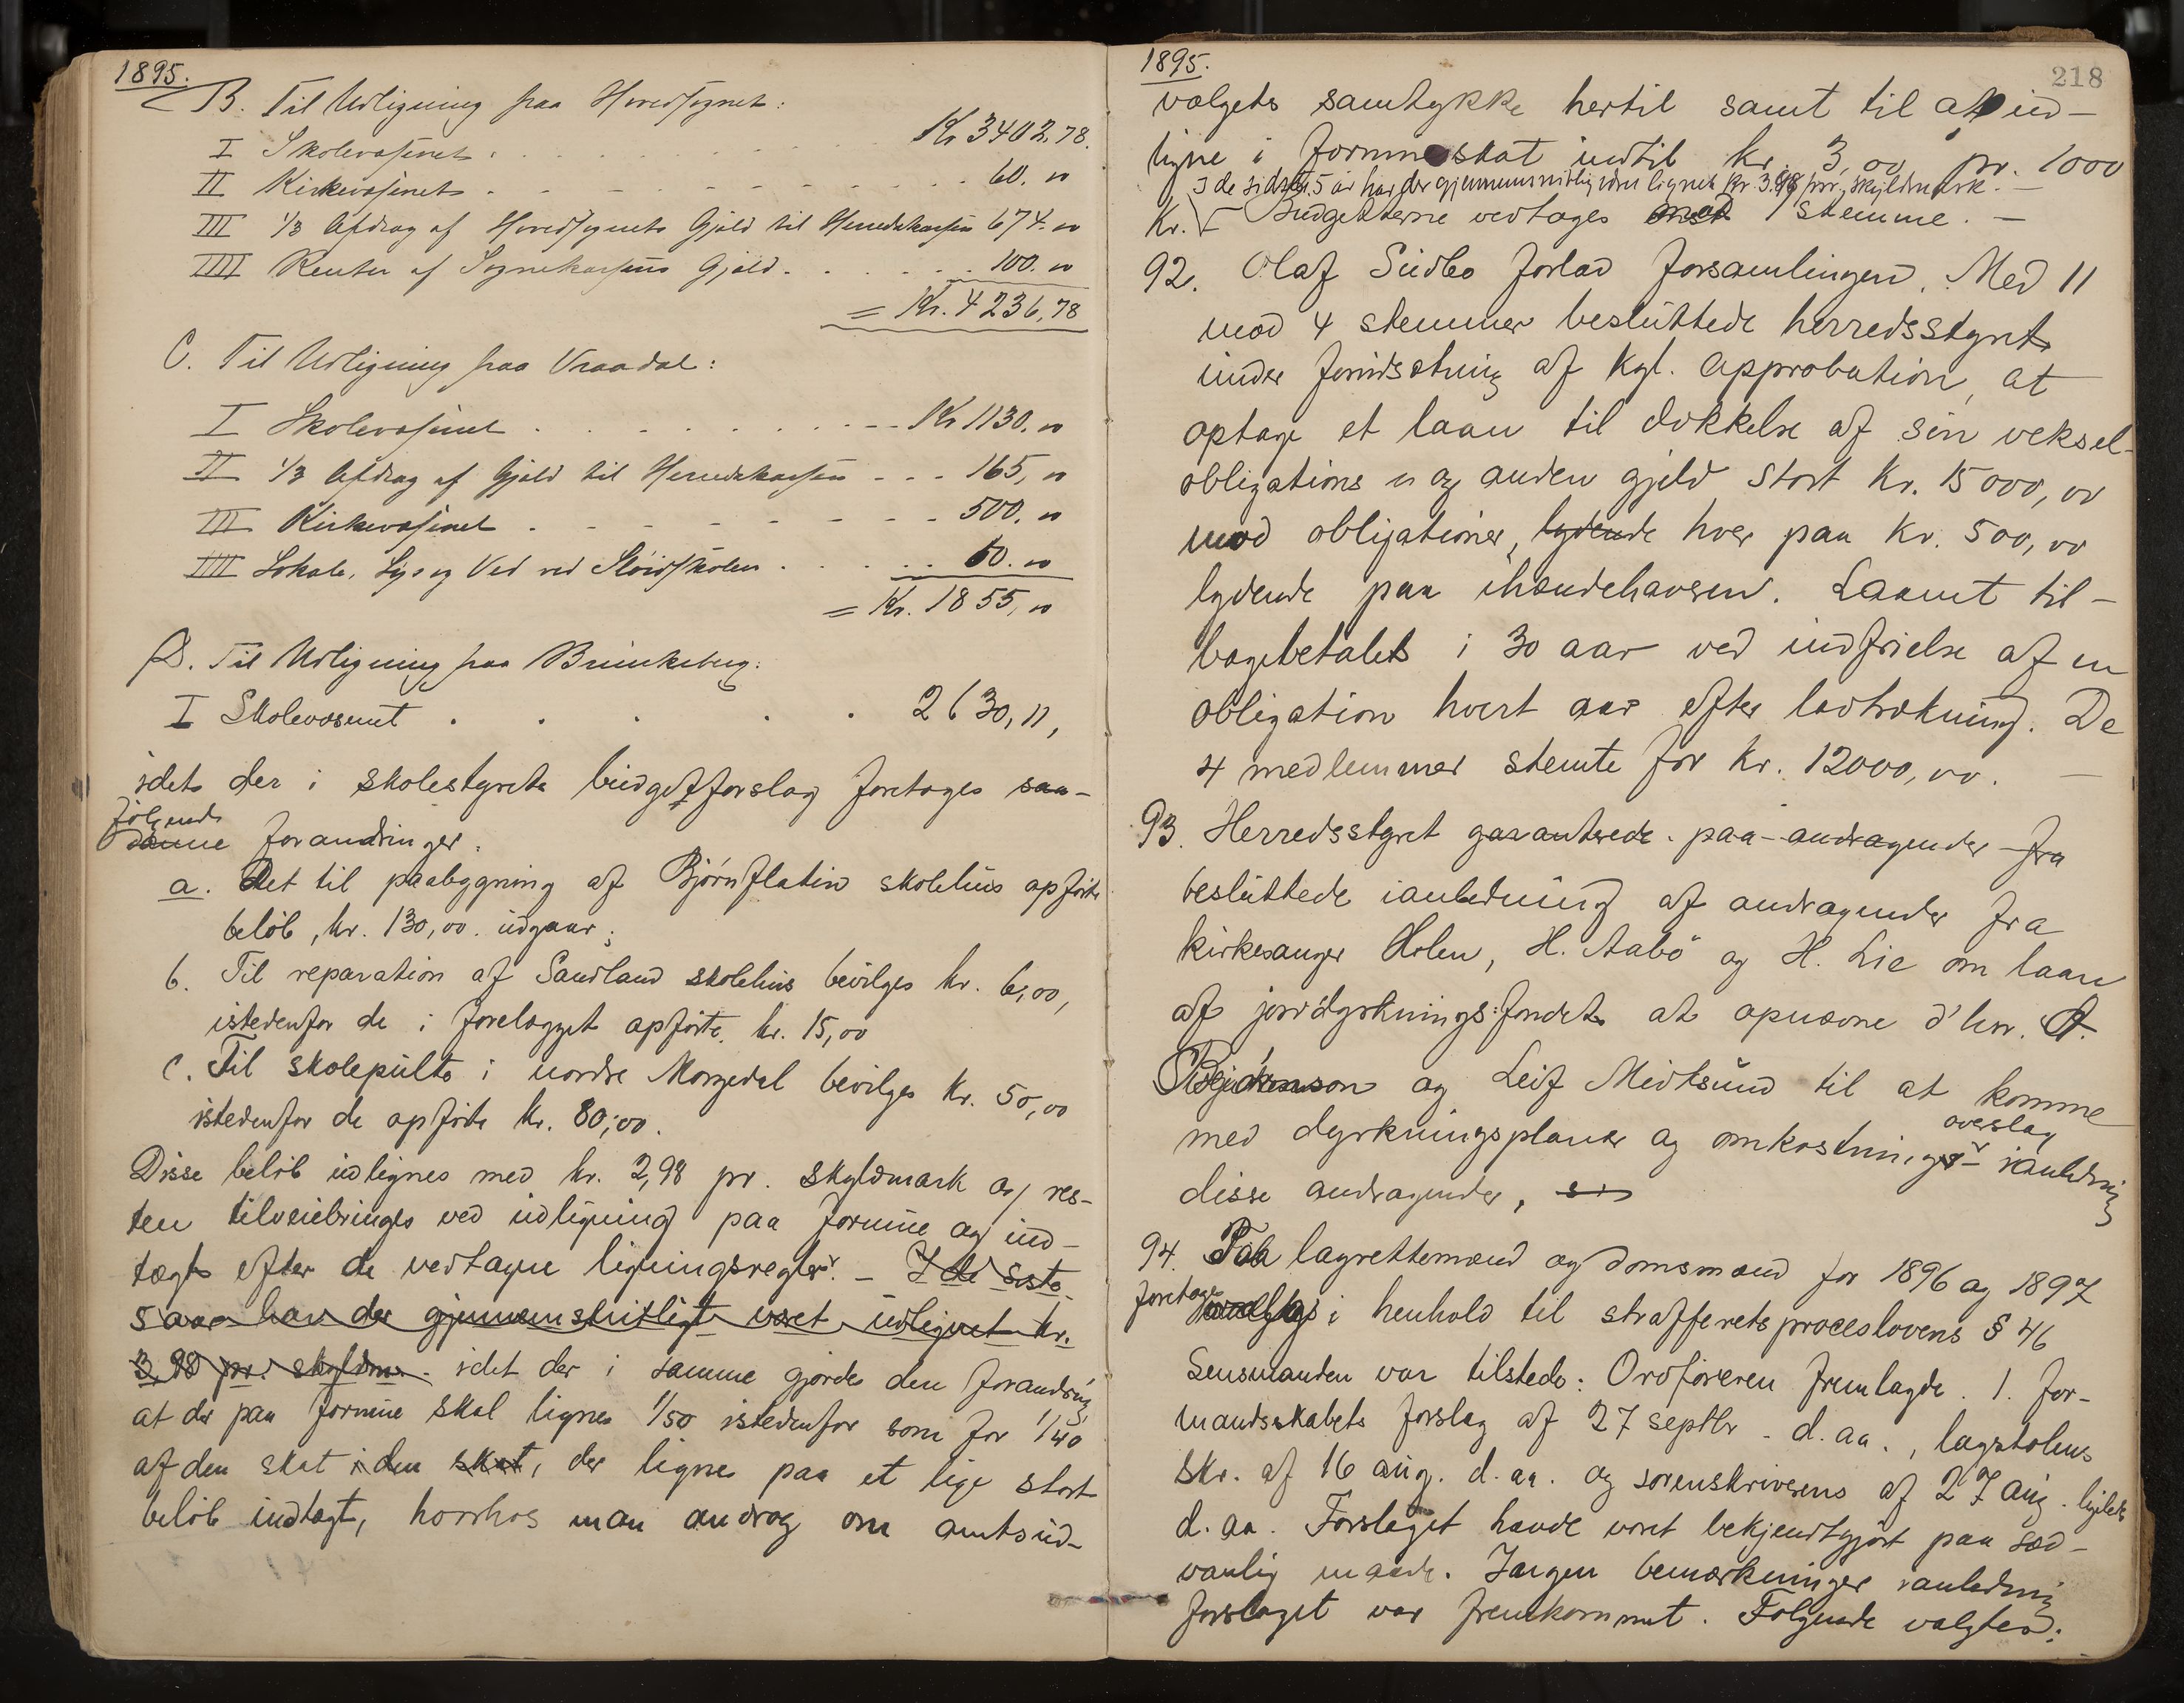 1895.
B. Til Udligning paa Hovedsognet:
I Skolevæsenet . . . . Kr 3402,78.
II Kirkevæsenet . . . . 60. 00
III 1/3 Afdrag af Hovedsognets Gjæld til Herredskassen 674. 00
IIII Renter af Sognekassens Gjæld . . . . 100. 00
= Kr. 4236,78
C. Til Udligning paa Vraadal:
I Skolevæsenet . . . . Kr 1130. 00
II 1/3 Afdrag af Gjæld til Herredskassen - - - 165, 00
III Kirkevæsenet . . . . 500. 00
IIII Lokale, Lys og Ved ved Sløidskolen . . . . 60. 00
= Kr. 1855, 00
D. Til Udligning paa Brunkeberg:
I Skolevæsenet . . . . 2630,11,
idet der i skolestyrets budgetforslag foretages saa-
følgende
danne forandringer:
a. Det til paabygning af Bjørnflatin skolehus opførte
beløb, kr. 130,00. udgaar;
b. Til reparation af Sandland skolehus bevilges kr. 6,00,
istedenfor de i forelægget opførte kr. 15,00
c. Til skolepulte i nordre Morgedal bevilges kr. 50,00
istedenfor de opførte kr. 80,00.
Disse beløb udlignes med kr. 2,98 pr. skyldmark og res-
ten tilveiebringes ved udligning paa formue og ind-
tægt efter de vedtagne ligningsregler. - I de siste
5 aar har der gjennemsnitligt været udlignet kr.
3,98 pr. skyldm. idet der i samme gjordes den forandring,
at der paa formue skal lignes 1/50 istedenfor som før 1/40
af den skat i den skat, der lignes paa et lige stort
beløb indtægt, hvorhos man androg om amtsud-
1895.
218
valgets samtykke hertil samt til at ud-
ligne i formueskat indtil kr. 3,00 pr. 1000
I de sidste 5 år har der gjennemsnitlig været lignet kr. 3.98 pr. skyldmark. -
Kr. Budgetterne vedtages mod 1 stemme. -
92. Olaf Sudbø forlod forsamlingen. Med 11
mod 4 stemmer besluttede herredsstyret
under forudsætning af kgl. approbation, at
optage et laan til dækkelse af sin veksel-
obligations og anden gjeld stort kr. 15000,00
mod obligationer, lydende hver paa kr. 500,00
lydende paa ihændehaveren. Laanet til-
bagebetales i 30 aar ved indfrielse af en
obligation hvert aar efter lodtrækning. De
4 medlemmer stemte for kr. 12000,00. -
93. Herredsstyret garanterede paa andragender fra
besluttede ianledning af andragender fra
kirkesanger Holen, H. Aabø og H. Lie om laan
af jorddyrkningsfondet at opnævne d'hrr.
og Leif Midtsund til at komme
overslag
med dyrkningsplaner og omkostnings- ianledning
disse andragender,
94. Paa lagrettemænd og domsmænd for 1896 og 1897
foretages valg i henhold til strafferetsproceslovens § 46
Lensmanden var tilstede. Ordføreren fremlagde. 1. for-
mandsskabets forslag af 27 septbr. d. aa., lagstolens
skr. af 16 aug. d. aa. og sorenskriverens af 27 aug. ligeledes
d. aa. Forslaget havde været bekjendtgjort paa sæd-
vanlig maade. Ingen bemerkninger ianledning
forslaget var fremkommet. Følgende valgtes: